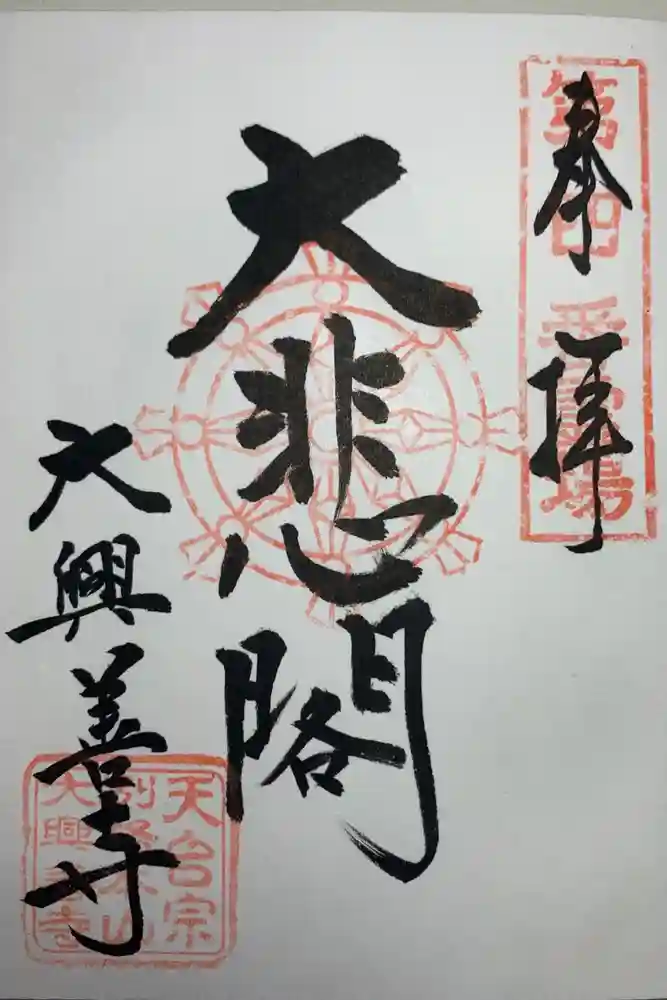 奉拝
第四番霊場
大悲閣
大興善寺
天台宗
別格本山
大興善寺